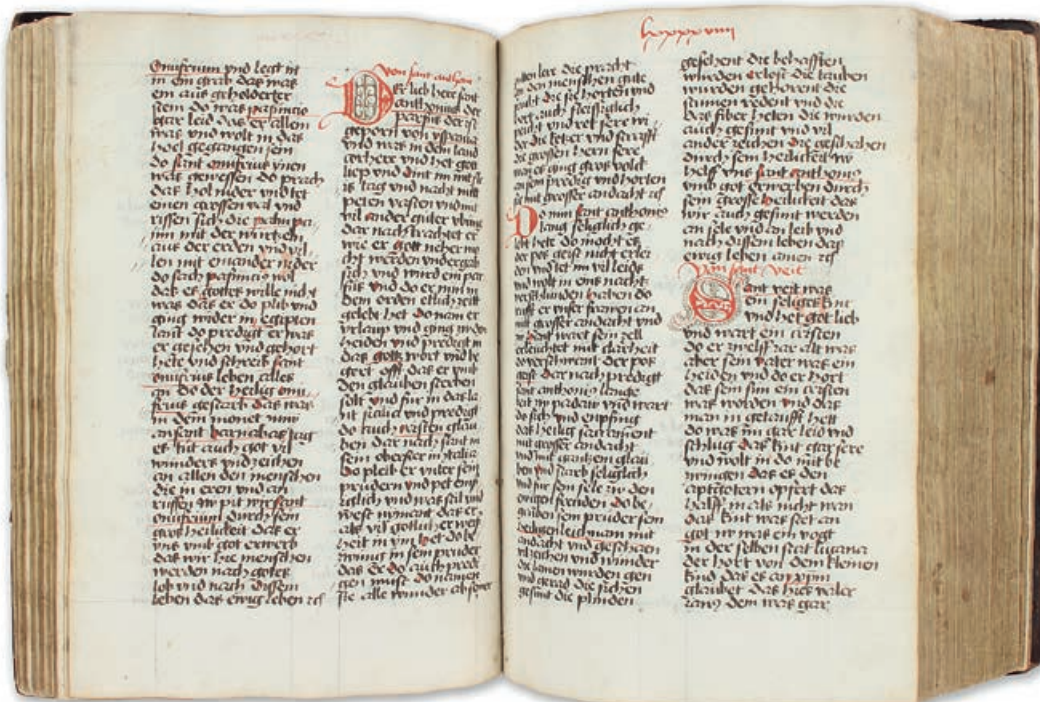 Onufrium vnd legt in
in ein grab das was
ein aus geholderter
stein do was pafuncio
gar leid das er allein
was vnd wolt in das
hoel gegangen sein
do sant Onufrius ynen
was gewessen do prach
das hol nider vnd tet
einen grossen val vnd
rissen sich die
mit der wurtzeln
aus der erden vnd vil
len mit einander nyder
do sach pafuncio wol
das es gottes wille nicht
was das er do plib vnd
ging wider in Egipten
lant do predigt er was
er gesehen vnd gehort
hete vnd schreib sant
onufrius leben alles
an Do der heilig onu
frius gestarb das was
in dem monet
an sant barnabas tag
es tut auch got vil
wunders vnd zeichen
an allen den menschen
die in eren vnd an
ruffen Nw pit wir sant
onufrium durch sein
gros heilickeit das er
vns vmb got erwerb
das wir hie menschen
werden nach gotes
lob vnd nach dissem
leben das ewig leben
Von sant anthoni
Der lieb here sant
anthonius der
geporn von yspania
vnd was in dem land
corhere vnd het got
liep vnd dint im mit fleis
tag vnd nacht mit
peten vasten vnd mit
vil ander guter vbung
dar nach trachtet er
wie er gott neher mo
cht werden vnd ergab
sich vnd ward ein par
fus vnd do er nun in
dem orden etlich zeit
gelebt het Do nam er
vrlaup vnd ging in den
heiden vnd predigt in
das gottz wort vnd be
gert offt das er vmb
den glauben sterben
solt vnd fur in das la
nt vnd predigt
do kristen glau
ben Dar nach sant in
sein oberster in italia
Do pleib er vnter sein
prudern vnd pet emsi
ziglich vnd was stil vnd
west nymant das er
als vil gotlicher weis
heit in ym het do be
twung in sein pruder
das er do auch predi
gen must do namen
sie alle wunder ab seiner
lxxxxviiii
lere die pracht
den menschen gute
frucht die sie horten vnd
lert auch fleissiglich
peicht vnd
die ketzer vnd strafft
die grossen hern sere
vnd es ging gros volck
an sein predig vnd horten
sie mit grosser andacht
Do nun sant anthonio
lang seliglich ge
lebt hete do mocht es
der pos geist nicht erlei
den vnd tet im vil leids
vnd wolt in ens nacht
verschlunden haben do
rufft er vnser frawen an
mit grosser andacht vnd
wart sein zell
erleuchtet mit clarheit
do verschwant der pos
geist Dar nach predigt
sant anthonio lange
zeit zu padaw vnd wart
do sich vnd enpfing
das heilig sacrament
mit grosser andacht
vnd mit gantzem glau
ben vnd starb seliglich
vnd fur sein sele zu den
ewigen freuden Do be
gruben sein pruder sein
heiligen leichnam mit
andacht vnd geschaen
vil zeichen vnd wunder
die lamen wurden gen
vnd gerad die sichen
gesunt die plinden
gesehent die behafften
wurden erlost die tauben
wurden gehorent die
stumen redent vnd die
das fiber heten die wurden
auch gesunt vnd vil
ander zeichen die geschahen
durch sein heilickeit Nw
helf vns sant anthonio
vmb got erwerben durch
sein grosse heilickeit das
wir auch gesunt werden
an sele vnd an leib vnd
nach dissem leben das
ewig leben amen
Von sant veit
Sant veit was
ein seliges kint
vnd het got lieb
vnd wart ein cristen
do er zwelff iar alt was
aber sein vater was ein
heiden vnd do er hort
das sein sun ein cristen
was worden vnd das
man in getaufft hett
do was im gar leid vnd
schlug das kint gar sere
vnd wolt in do mit be
zwingen das es den
apttotern opfert das
halff in als nicht wan
das kint was stet an
got nw was ein vogt
in der selben stat lucana
der hort von dem kleinen
kind das es an xpum
glaubet das hies valer
ianus dem was gar